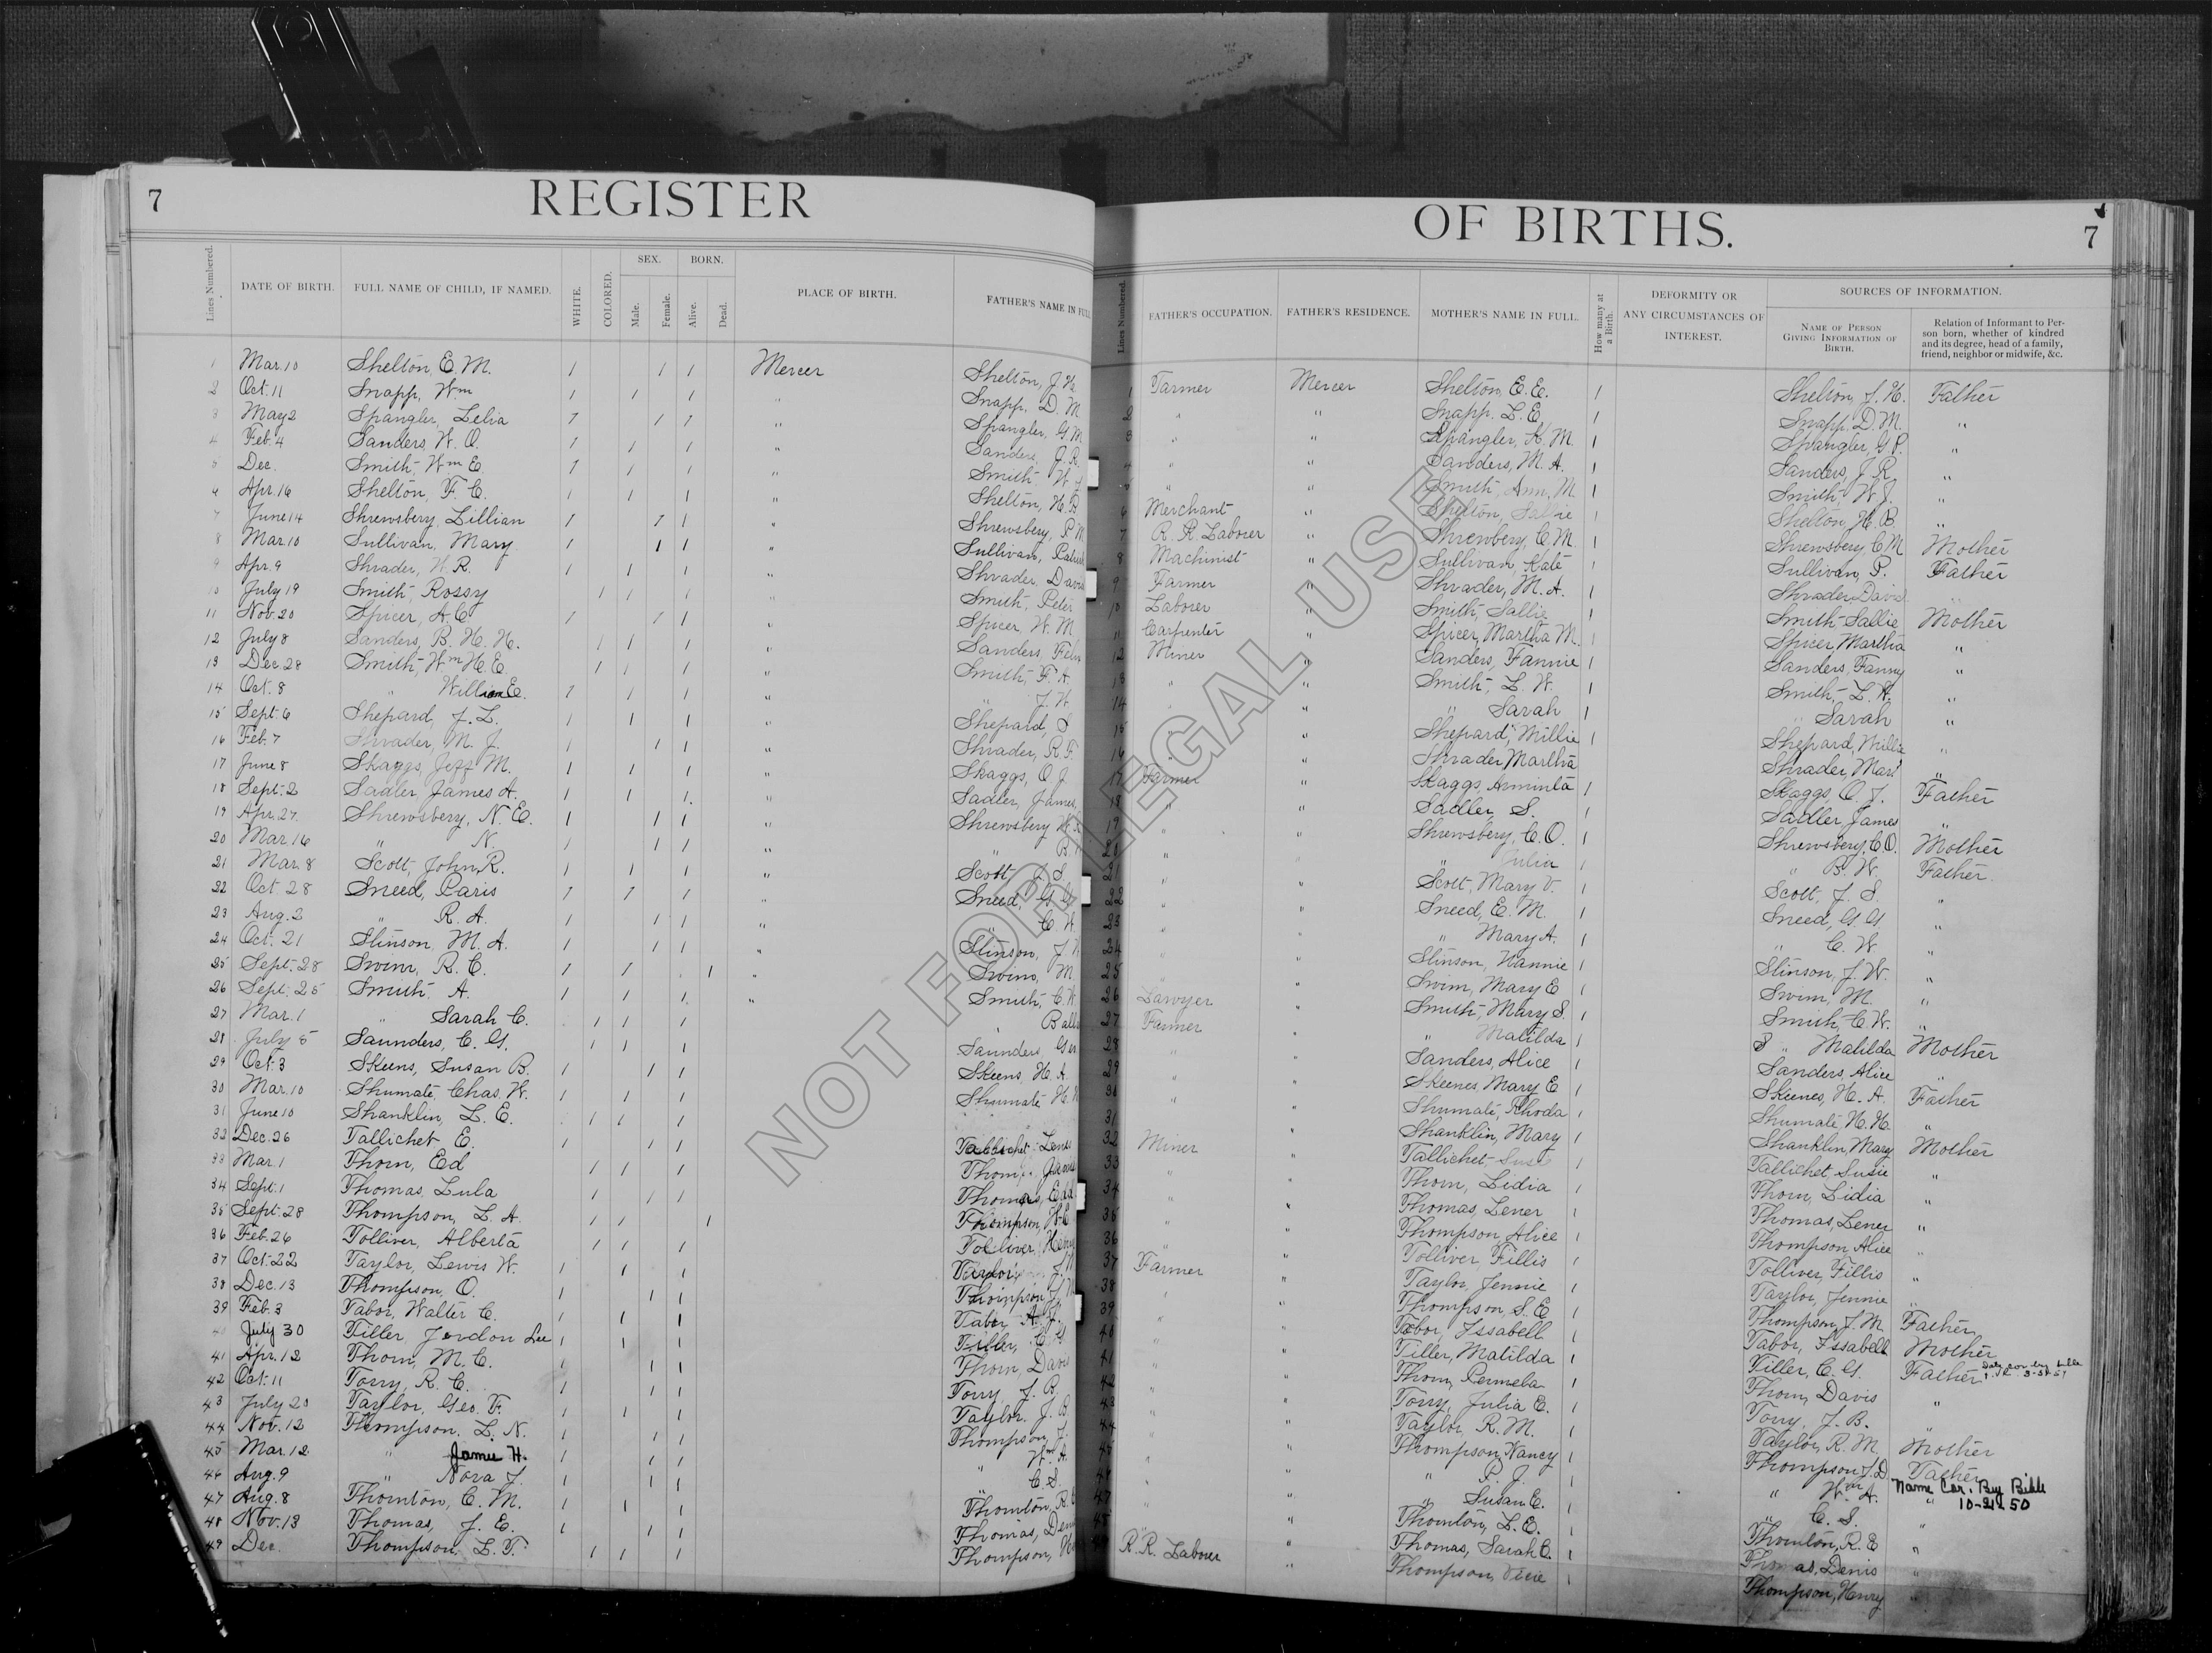 7
REGISTER
OF BIRTHS.
7
Lines Numbered.
DATE OF BIRTH.
FULL NAME OF CHILD, IF NAMED.
WHITE.
COLORED.
SEX.
Male.
Female.
BORN.
Alive.
Dead.
PLACE OF BIRTH.
FATHER'S NAME IN FULL
Lines Numbered.
FATHER'S OCCUPATION.
FATHER'S RESIDENCE.
MOTHER'S NAME IN FULL.
How many at a Birth.
DEFORMITY OR ANY CIRCUMSTANCES OF INTEREST.
SOURCES OF INFORMATION.
NAME OF PERSON GIVING INFORMATION OF BIRTH.
Relation of Informant to Person born, whether of kindred and its degree, head of a family, friend, neighbor or midwife, &c.
1 Mar. 10 Shelton, E. M. 1 1 1 Mercer Shelton, J. H.
2 Oct. 11 Snapp, Wm 1 1 1 " Snapp, D. M.
3 May 2 Spangler, Lelia 1 1 1 " Spangler, G.
4 Feb. 4 Sanders, W. O. 1 1 1 " Sanders, J. R.
5 Dec. Smith, Wm E. 1 1 1 " Smith W. J.
6 Apr. 16 Shelton, F. C. 1 1 1 " Shelton, H. B.
7 June 14 Shrewsbery, Lillian 1 1 1 " Shrewsbery, P. M.
8 Mar. 10 Sullivan, Mary 1 1 1 " Sullivan, Patrick
9 Apr. 9 Shrader, H. R. 1 1 1 " Shrader, David
10 July 19 Smith, Rossy 1 1 1 " Smith, Peter
11 Nov. 20 Spicer, A. C. 1 1 1 " Spicer, W. M.
12 July 8 Sanders, B. H. H. 1 1 1 " Sanders,
13 Dec 28 Smith, Wm H. E. 1 1 1 " Smith, F. A.
14 Oct. 8 " William E. 1 1 1 " " J. W.
15 Sept. 6 Shepard, J. L. 1 1 1 " Shepard,
16 Feb. 7 Shrader, M. J. 1 1 1 " Shrader, R. F.
17 June 8 Skaggs, Jeff M. 1 1 1 " Skaggs, O. J.
18 Sept. 2 Sadler, James A. 1 1 1 " Sadler, James,
19 Apr. 27 Shrewsbery, N. E. 1 1 1 " Shrewsbery
20 Mar. 16 " N. 1 1 1 " " B.
21 Mar. 8 Scott, John R. 1 1 1 " Scott J. S.
22 Oct 28 Sneed, Paris 1 1 1 " Sneed, G. G.
23 Aug. 2 " R. A. 1 1 1 " " C. W.
24 Oct. 21 Stinson, M. A. 1 1 1 " Stinson, J.
25 Sept. 28 Swim, R. C. 1 1 1 " Swim, M.
26 Sept. 25 Smith, A. 1 1 1 " Smith, C. W.
27 Mar. 1 " Sarah C. 1 1 1 "
28 July 5 Saunders, C. G. 1 1 1 Saunders,
29 Oct. 3 Skeens, Susan B. 1 1 1 Skeens, H. A.
30 Mar. 10 Shumate, Chas. W. 1 1 1 Shumate H.
31 June 10 Shanklin, L. E. 1 1 1
32 Dec. 26 Tallichet E. 1 1 1 Tallichet
33 Mar. 1 Thorn, Ed 1 1 1 Thorn, James
34 Sept. 1 Thomas, Lula 1 1 1 Thomas, Edd
35 Sept. 28 Thompson, L. A. 1 1 1 Thompson,
36 Feb. 26 Tolliver, Alberta 1 1 1 Tolliver, Henry
37 Oct. 22 Taylor, Lewis W. 1 1 1 Taylor,
38 Dec. 13 Thompson, O. 1 1 1 Thompson, J. M.
39 Feb. 3 Tabor, Walter C. 1 1 1 Tabor, A. J.
40 July 30 Tiller, Jordon Lee 1 1 1 Tiller, C. G.
41 Apr. 12 Thorn, M. C. 1 1 1 Thorn, Davis
42 Oct. 11 Torry, R. C. 1 1 1 Torry J. B.
43 July 20 Taylor, Geo. F. 1 1 1 Taylor. J. B.
44 Nov. 12 Thompson, L. N. 1 1 1 Thompson, J.
45 Mar. 12 " James H. 1 1 1 " Wm A.
46 Aug. 9 " Nora J. 1 1 1 " C. S.
47 Aug. 8 Thornton, C. M. 1 1 1 Thornton, R. E.
48 Nov. 13 Thomas, J. E. 1 1 1 Thomas, Denis
49 Dec. Thompson, L. T. 1 1 1 Thompson,
1 Farmer Mercer Shelton, E. E. 1 Shelton, J. H. Father
2 " " Snapp. L. E. 1 Snapp, D. M. "
3 " " Spangler, K. M. 1 Spangler, G. P. "
4 " " Sanders, M. A. 1 Sanders, J. R. "
5 " " Smith, Ann, M. 1 Smith, W. J. "
6 Merchant " Shelton, Sallie 1 Shelton, H. B. "
7 R. R Laborer " Shrewbery, C. M. 1 Shrewsbery, C. M Mother
8 Machinist " Sullivan, Kate 1 Sullivan, P. Father
9 Farmer " Shrader, M. A. 1 Shrader, David "
10 Laborer " Smith, Sallie 1 Smith, Sallie Mother
11 Carpenter " Spicer, Martha M. 1 Spicer, Martha "
12 Miner " Sanders, Fannie 1 Sanders, Fanny "
13 " " Smith, L. W. 1 Smith, L. W. "
14 " " " Sarah 1 " Sarah "
15 " " Shepard, Millie 1 Shepard, Willie "
16 " " Shrader Martha Shrader, "
17 Farmer " Skaggs, Arminta 1 Skaggs, O. J. Father
18 " " Sadler, S. 1 Sadler, James "
19 " " Shrewsbery, C. O. 1 Shrewsbery, C. O. Mother
20 " " " Julia 1 " B. W. Father
21 " " Scott, Mary V. 1 Scott, J. S. "
22 " " Sneed, E. M. 1 Sneed, G. G. "
23 " " " Mary A. 1 " C. W "
24 " " Stinson, Nannie 1 Stinson, J. W. "
25 " " Swim, Mary E 1 Swim, M. "
26 Lawyer " Smith, Mary S. 1 Smith, C. W. "
27 Farmer " " Matilda 1 S " Matilda Mother
28 " " Sanders, Alice 1 Sanders, Alice "
29 " " Skeenes, Mary E 1 Skeenes, H. A. Father
30 " " Shumate, Rhoda 1 Shumate, H. H. "
31 " Shanklin, Mary 1 Shanklin, Mary Mother
32 Miner " Tallichet, Susie 1 Tallichet, Susie "
33 " " Thorn, Lidia 1 Thorn, Lidia "
34 " " Thomas, Lener 1 Thomas, Lener "
35 " " Thompson, Alice 1 Thompson, Alice "
36 " " Tolliver, Fillis 1 Tolliver, Fillis "
37 Farmer " Taylor, Jennie 1 Taylor, Jennie "
38 " " Thompson, S. E 1 Thompson, J. M. Father
39 " " Tabor, Issabell 1 Tabor, Issabell Mother
40 " " Tiller, Matilda 1 Tiller, C. G. Father
41 " " Thorn, Permela 1 Thorn, Davis "
42 " " Torry, Julia E. 1 Torry, J. B. "
43 " " Taylor, R. M. 1 Taylor, R. M. Mother
44 " " Thompson, Nancy 1 Thompson, J. D. Father
45 " " " P. J. 1 " Wm A. " Name Cor. By Bible 10-21-50
46 " " " Susan E. 1 " C. S. "
47 " " Thornton, L. E. 1 Thornton, R. E "
48 " " Thomas, Sarah C. 1 Thomas, Denis "
49 R. R. Laborer " Thompson, 1 Thompson, Henry "
NOT FOR LEGAL USE